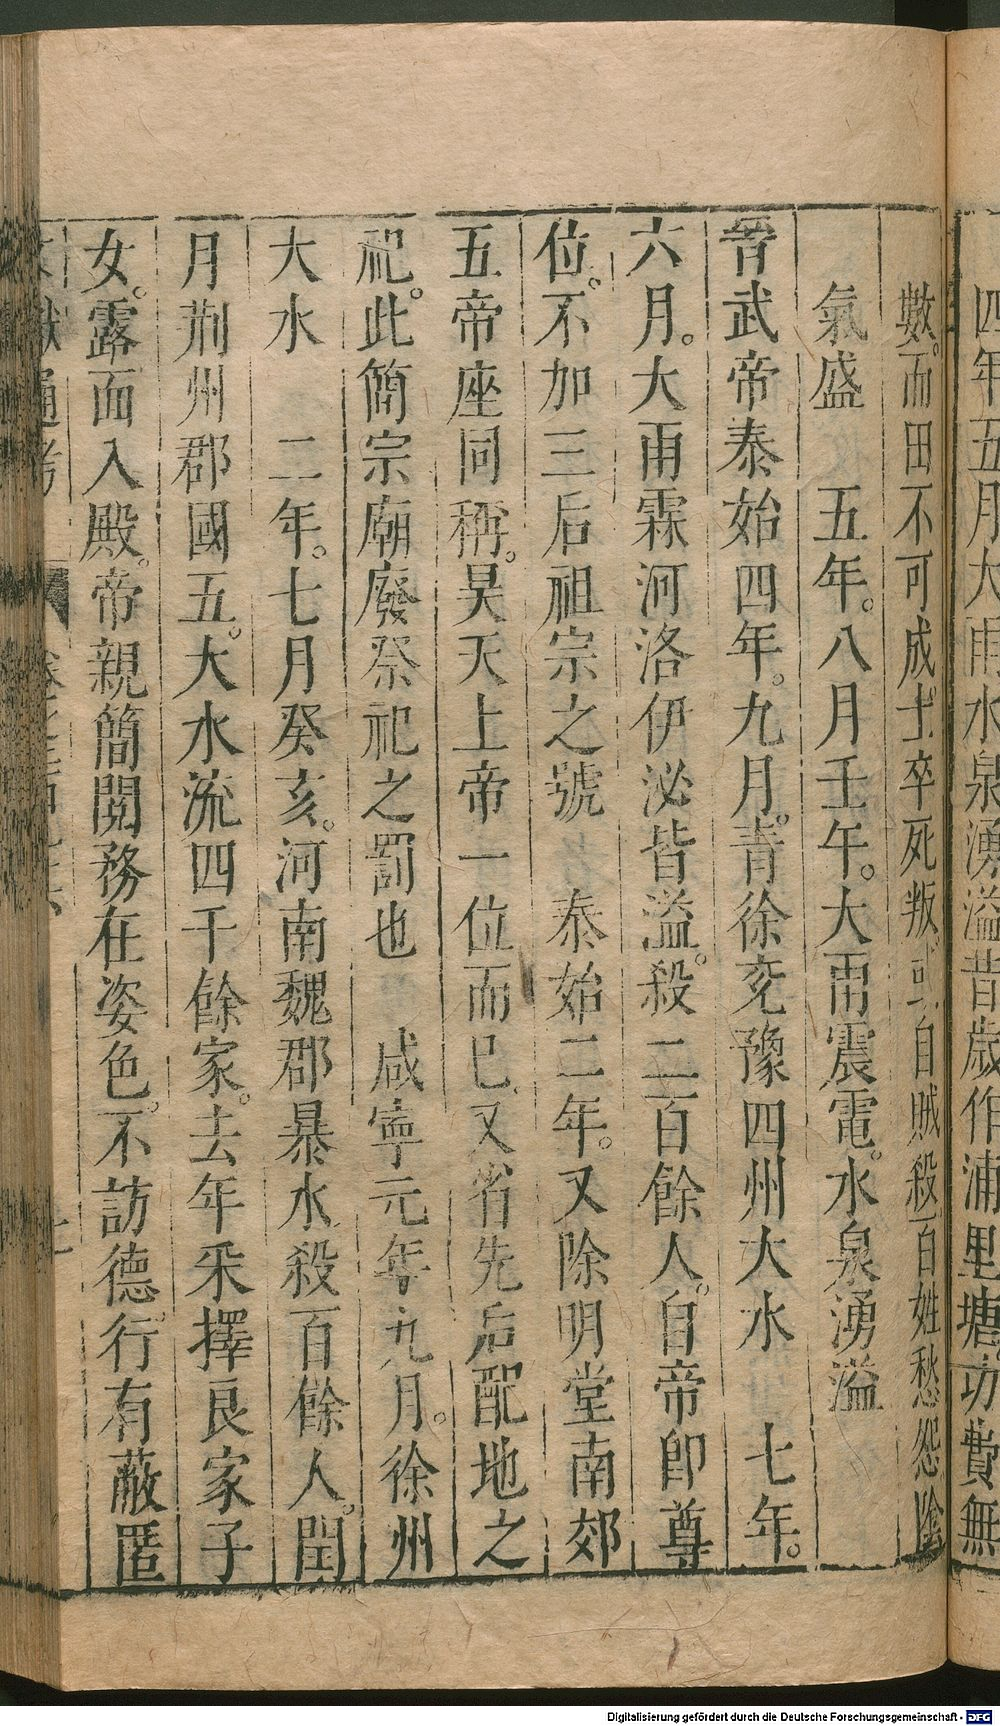 四年五月大雨水泉湧溢昔歲作浦里塘功費無
數而田不可成士卒死叛或自賊殺百姓愁怨陰
氣盛　五年八月壬午大雨震電水泉湧溢
晉武帝泰始四年九月青徐兗豫四州大水　七年
六月大雨霖河洛伊泌皆溢殺二百餘人自帝即尊
位不加三后祖宗之號　泰始二年又除明堂南郊
五帝座同稱昊天上帝一位而已又省先后配地之
祀此簡宗廟廢祭祀之罰也　咸寧元年九月徐州
大水　二年七月癸亥河南魏郡暴水殺百餘人閏
月荆州郡國五大水流四千餘家去年采擇良家子
女露面入殿帝親簡閱務在姿色不訪德行有蔽匿
Digitalisierung gefördert durch die Deutsche Forschungsgemeinschaft - DFG